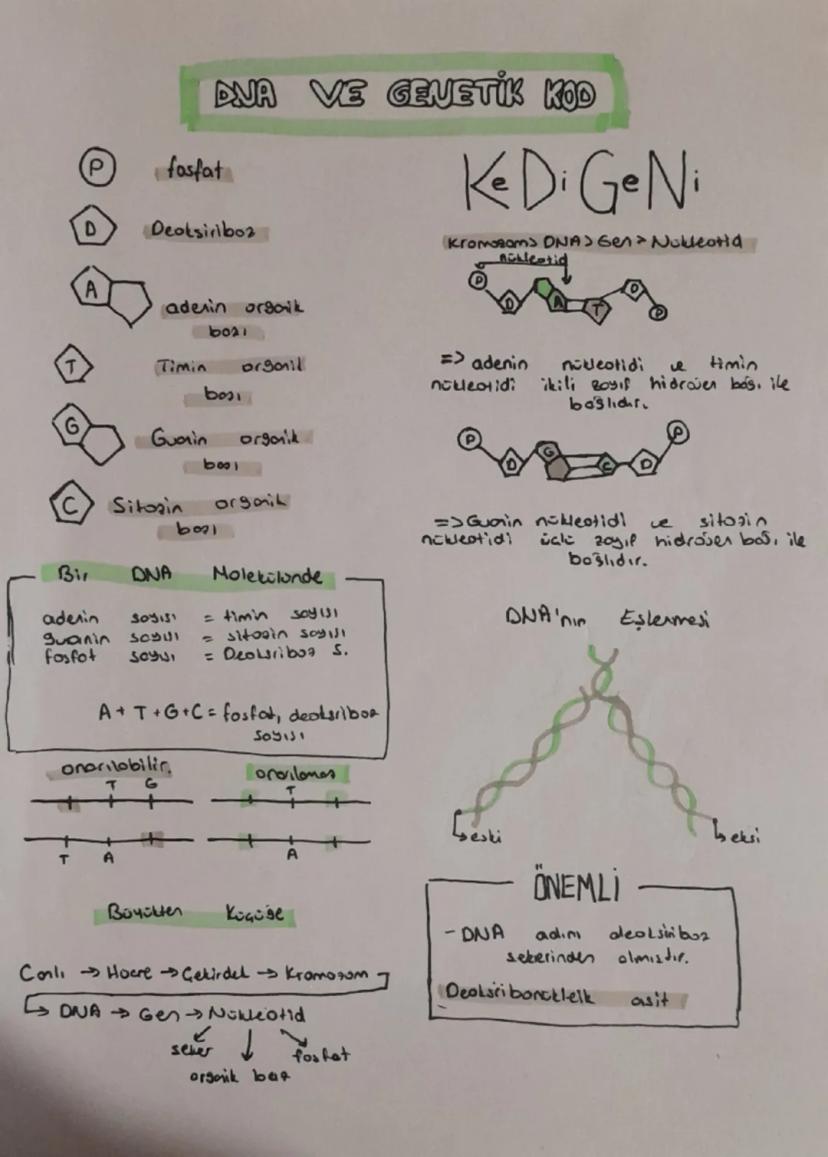 DNA VE GENETİK KOD
P fosfat
D Deoksiriboz
A adenin organik
bazı
T Timin organik
bazı
G Guanin organik
bazı
C Sitozin organik
bazı
Bir DNA Molekülünde
adenin sayısı = timin sayısı
guanin sayısı = sitozin sayısı
fosfat sayısı = Deoksiriboz S.
A+T+G+C = fosfat, deoksiriboz
sayısı
onarılabilir.
T G
T A
onarılamaz
T
A
Büyükten Küçüğe
Canlı → Hücre → Çekirdek → Kromozom
→ DNA → Gen → Nükleotid
şeker
organik baz
fosfat
KeDiGeNi
Kromozom > DNA > Gen > Nükleotid
nükleotid
P D A T D P
=> adenin nükleotidi ve timin
nükleotidi ikili zayıf hidrojen bağı ile
bağlıdır.
P D G C D P
=> Guanin nükleotidi ve sitozin
nükleotidi üçlü zayıf hidrojen bağı ile
bağlıdır.
DNA'nın Eşlenmesi
eski
eksi
ÖNEMLİ
- DNA adını deoksiriboz
şekerinden almıştır.
Deoksiribonükleik asit